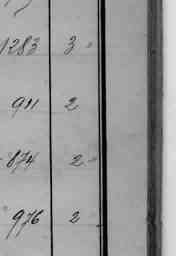 1283 3 "
911 2
874 2 "
976 2